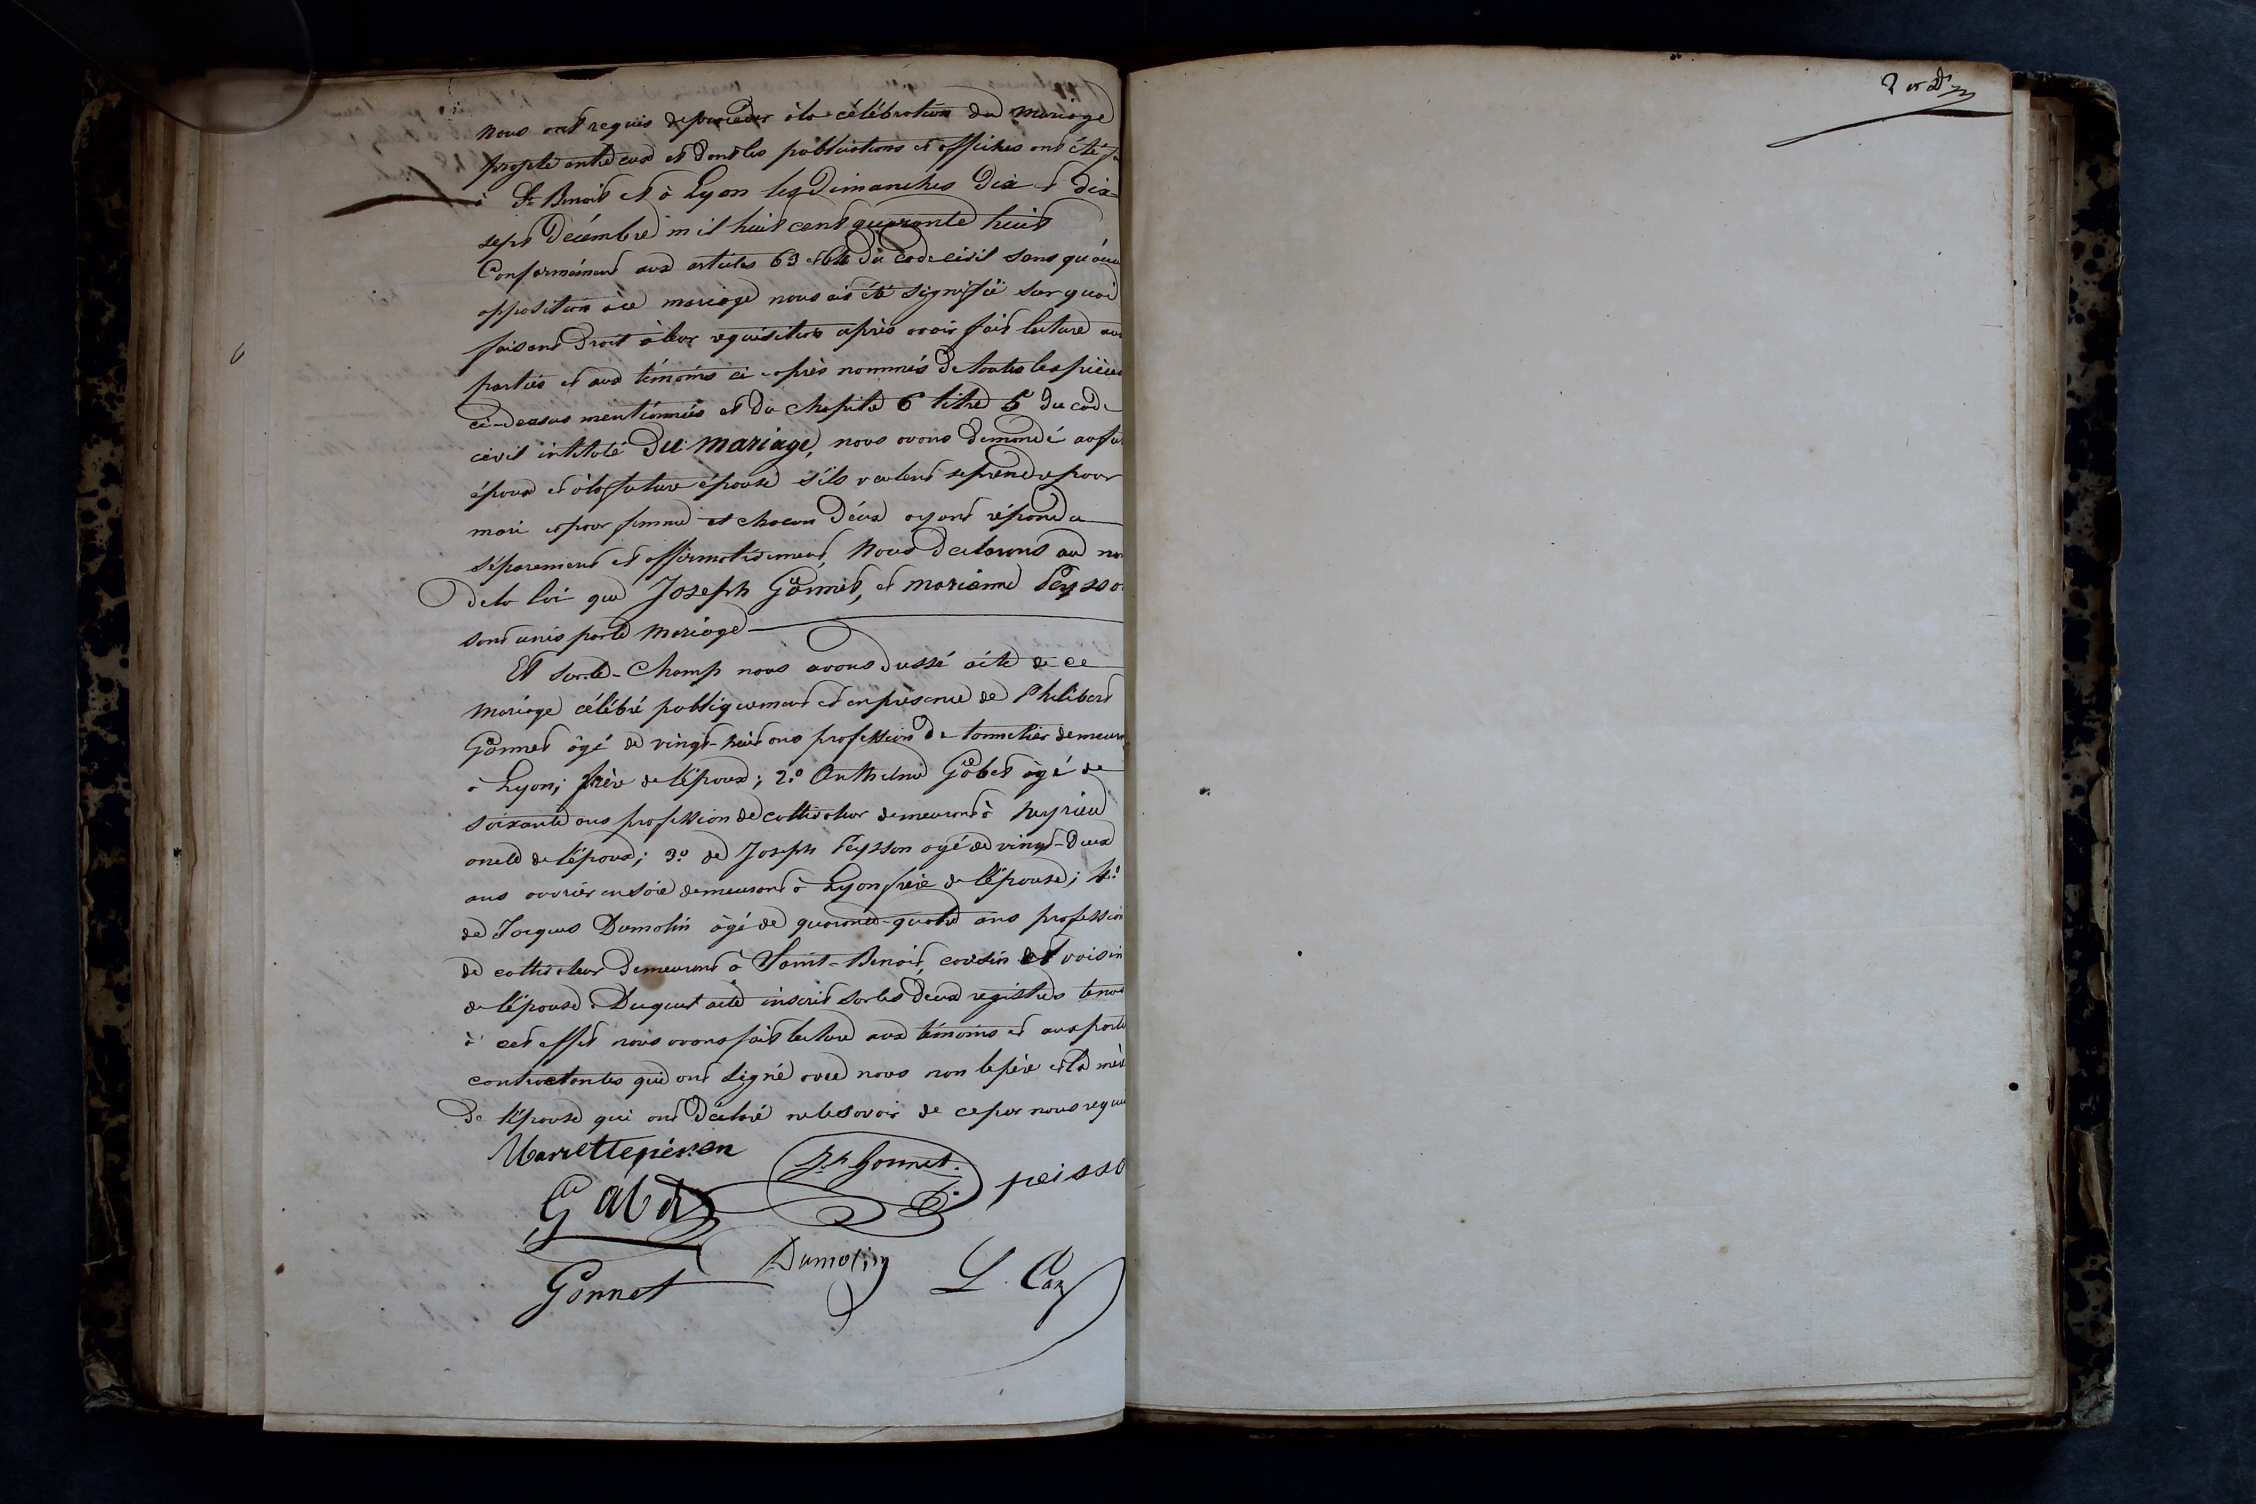 nous ont requis de proceder à la célébration du mariage
projeté entre eux et dont les publications et affiches ont été
à St Benoit et à Lyon les Dimanches dix et dix
sept Décembre mil huit cent quarante huit
Conformément aux articles 63 et 64 du code civil sans qu'aucu
opposition à ce mariage nous ait été signifié sur quoi
faisant Droit à leur requisition après avoir fait lecture aux
parties et aux témoins ci-après nommés De toutes les pièces
ci-dessus mentionnées et du chapitre 6 titre 5 du code
civil intitulé Du Mariage, nous avons demandé au fu
époux et à la future épouse s'ils veulent se prendre pour
mari et pour femme et chacun d'eux ayant répondu
séparement et affirmativement, Nous Declarons au no
De la loi que Joseph Gonnet, et marianne Peysso
sont unis par le mariage
Et sur-le-Champ nous avons dressé acte de ce
Mariage célébré publiquement et en présence de Philibert
Gonnet âgé de vingt-huit ans profession de tonnelier demeura
à Lyon; frère de l'époux; 2.o Anthelme Gabet âgé de
soixante ans profession de cultivateur demeurant à peyrieu
oncle de l'époux; 3.o de Joseph Peysson agé de vingt-deux
ans ouvrier en soie demeurant à Lyon frère de l'épouse; 4.o
de Jacques Dumolin âgé de quarante-quatre ans profession
de cultivateur Demeurant à Saint-Benoit, cousin et voisin
de l'épouse. Duquel acte inscrit sur les deux registres tenus
à cet effet nous avons fait lecture aux témoins et aux parti
contractantes qui ont signé avec nous non le père et la mère
De l'épouse qui ont Déclaré ne le savoir de ce par nous requi
Marriette
Jh Gonnet.
peisso
Gabet
Dumolin
Gonnet